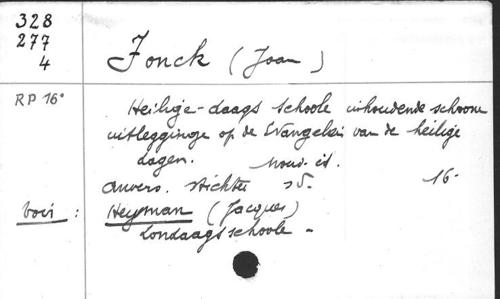 328
277
4
Jonck (Joan)
RP 16°
Heilige-daags schoole inhoudende schoone
uitlegginge op de Evangelien van de heilige
dagen. Nouv. éd.
Anvers. Stichter sd. 16-
voir : Heyman (Jacques)
Sondaagsschoole -